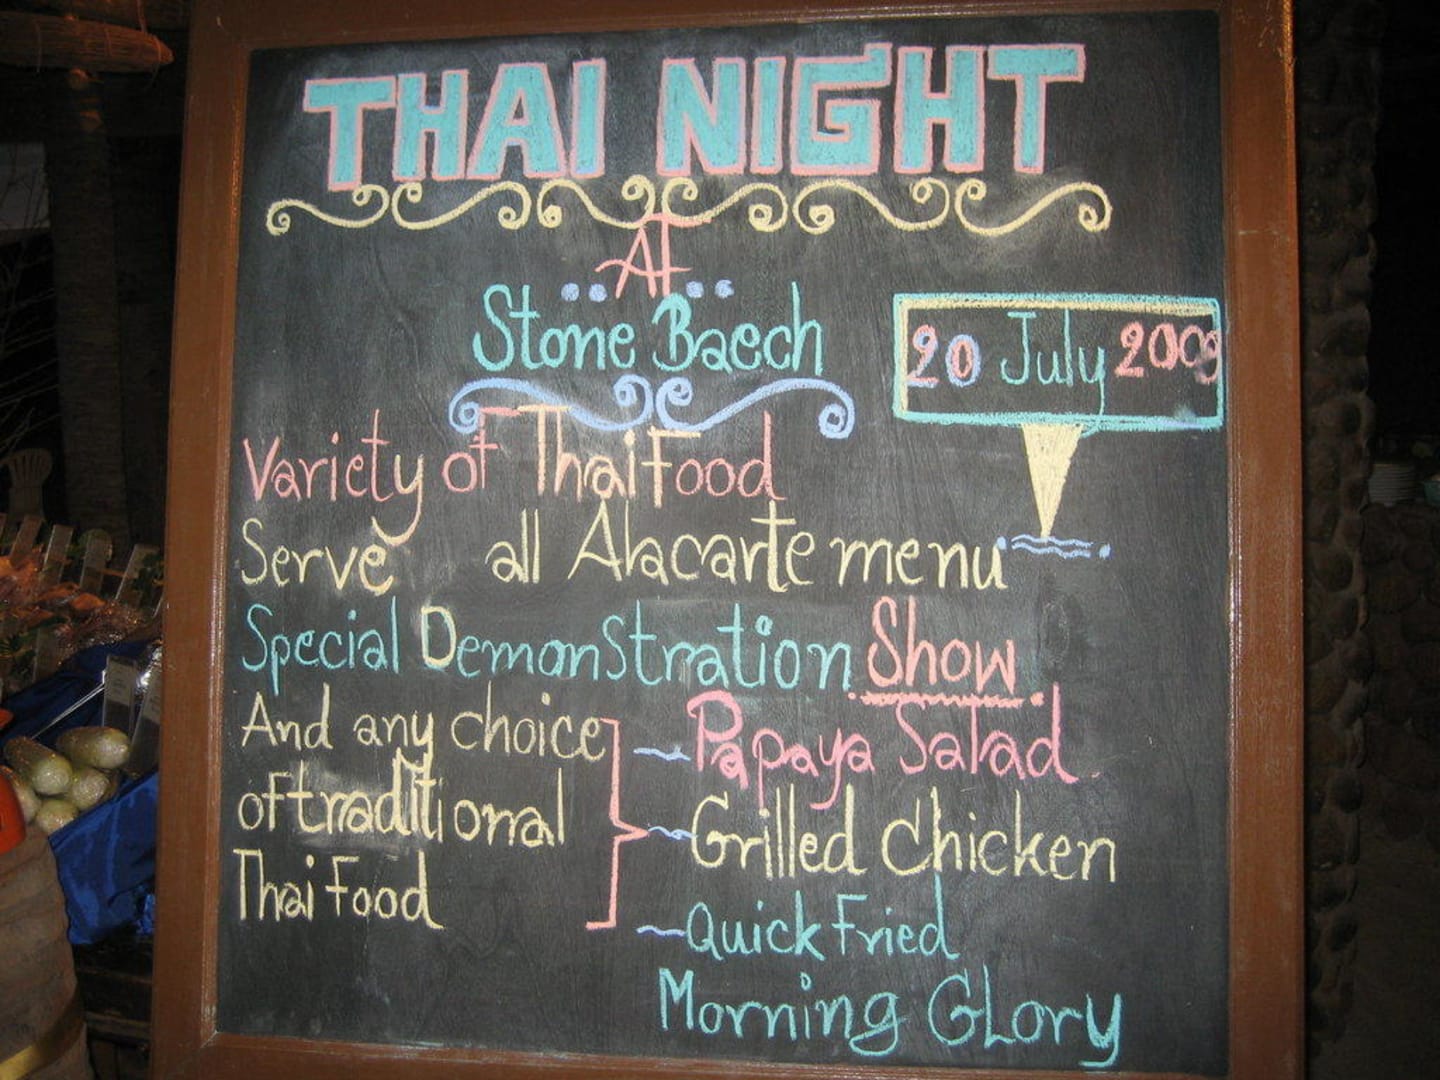 THAI NIGHT
AT
Stone Baech
20 July 2009
Variety of Thai Food
Serve all Alacarte menu
Special Demonstration Show
And any choice
of traditional
Thai Food
Papaya Salad
Grilled Chicken
Quick Fried
Morning GLory